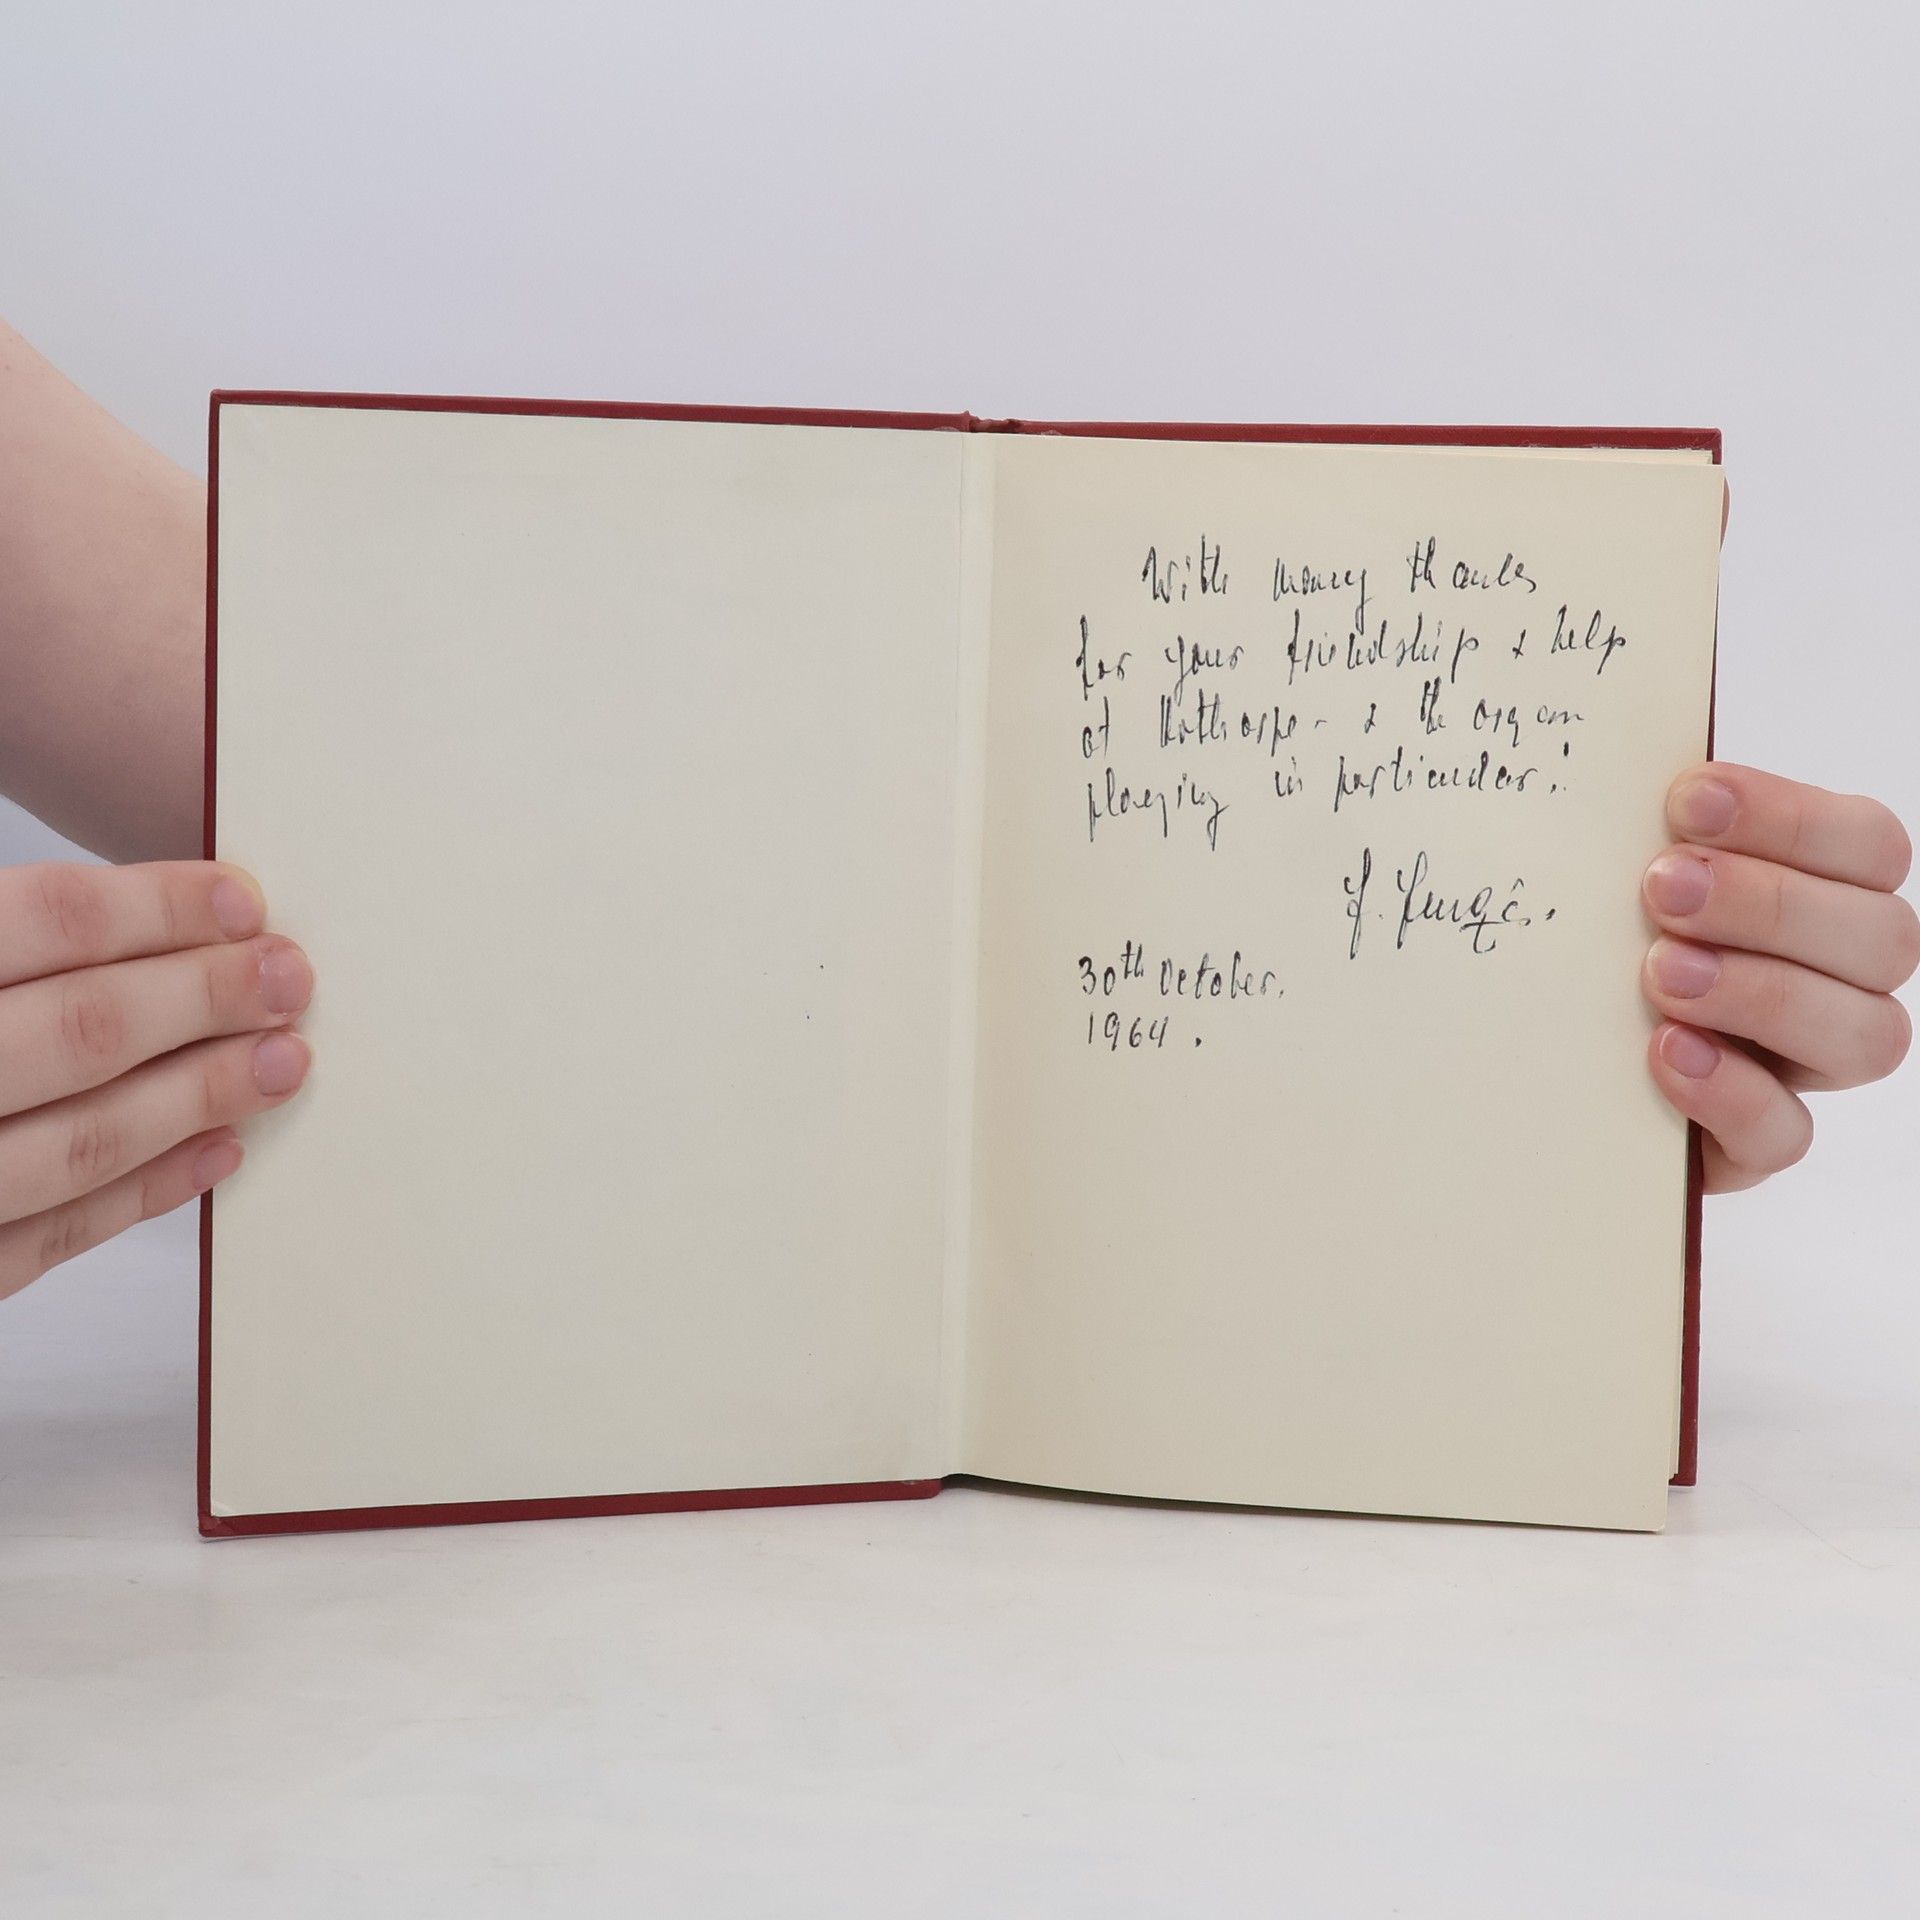 With many thanks
for your friendship & help
at & the organ
playing in particular!
30th October.
1964.